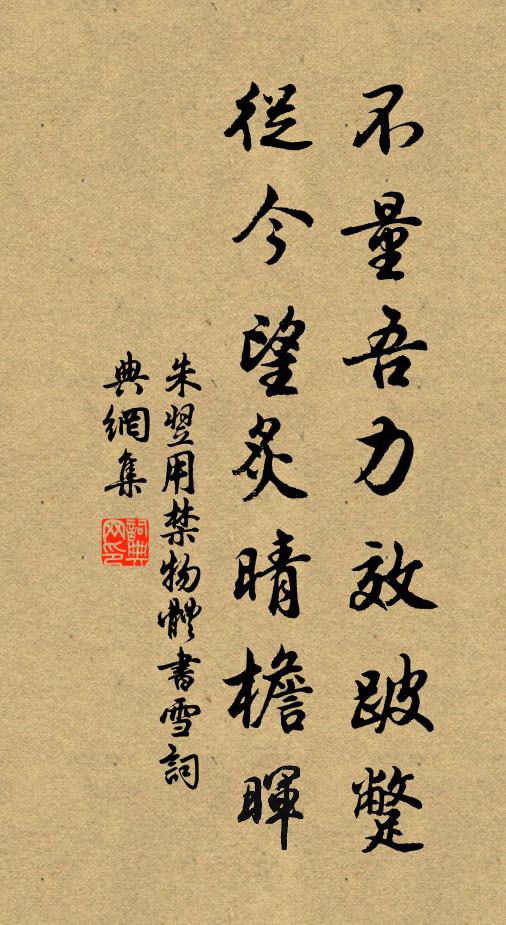 不量吾力效跛蹩
從今望炙晴檐暉
朱翌用禁物體書雪詞
典網集
詞典网印